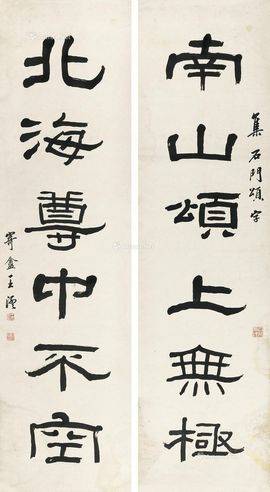 南山頌上無極
集石門頌字
北海尊中不空